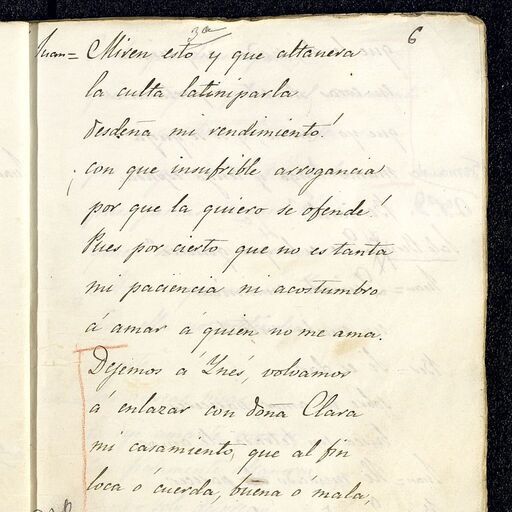 3a 6
Juan= Miren esto y que altanera
la culta latiniparla
desdeña mi rendimiento!
¡ con que insufrible arrogancia
por que la quiero se ofende!
Pues por cierto que no es tanta
mi paciencia ni acostumbro
á amar á quien no me ama.
Dejemos á Ynés, volvamos
á enlazar con doña Clara
mi casamiento, que al fin
loca ó cuerda, buena o mala,